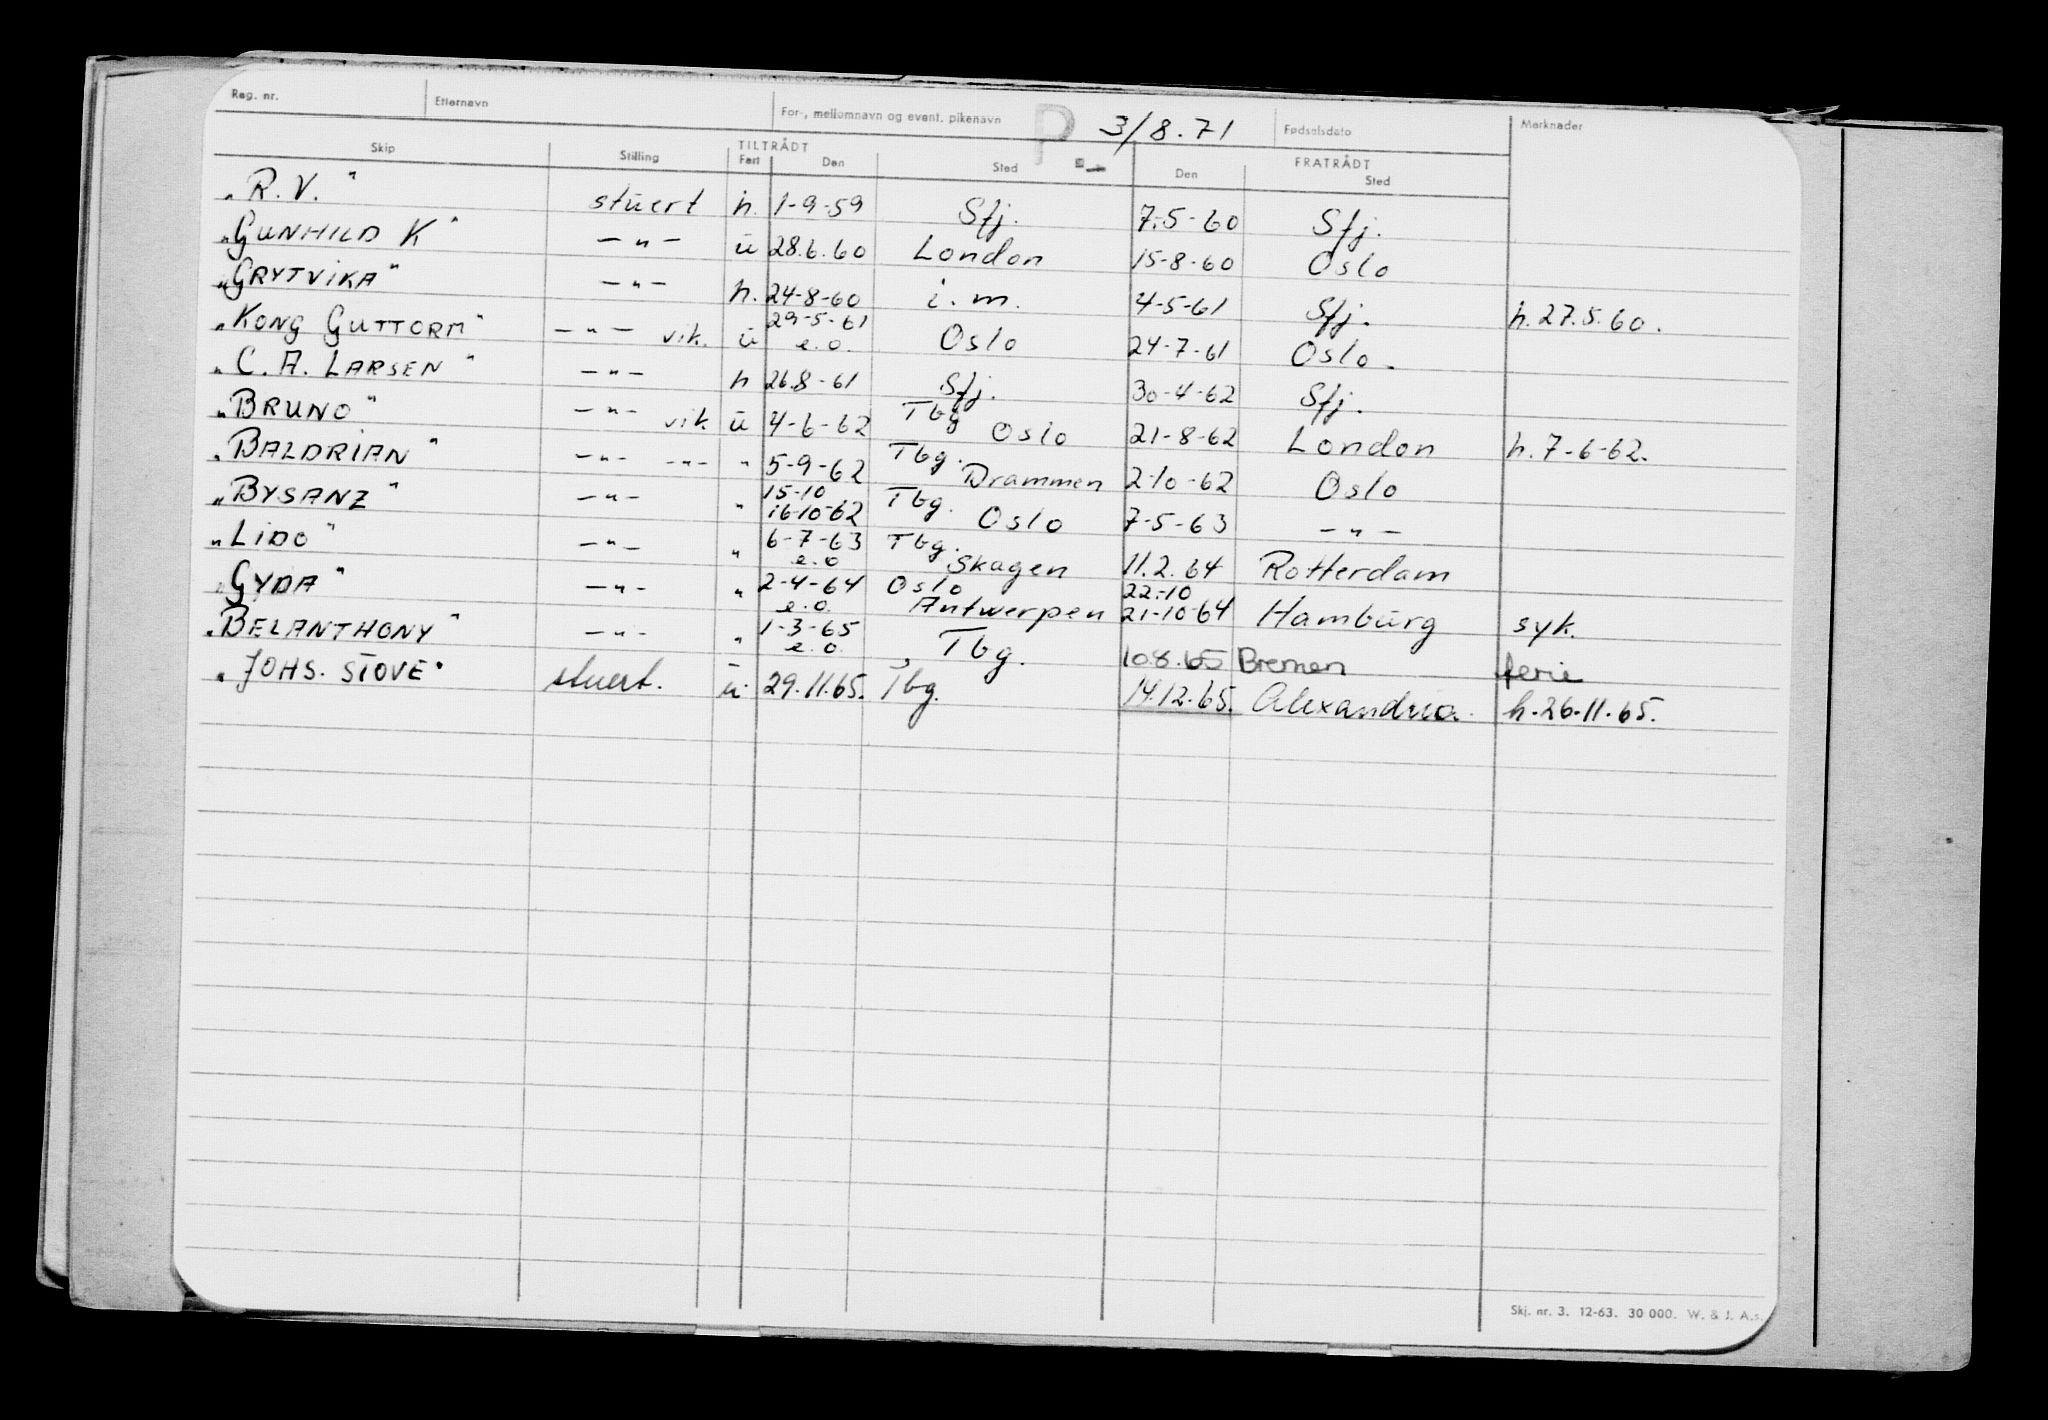 Reg. nr. Etternavn For-, mellomnavn og event. pikenavn P 3/8.71 Fødselsdato Merknader
Skip Stilling TILTRÅDT Fart Den Sted FRATRÅDT Den Sted
"R.V." stuert h. 1-9-59 Sfj. 7.-5-60 Sfj.
"GUNHILD K" -"- ū 28.6.60 London 15-8-60 Oslo
"GRYTVIKA" -"- h. 24-8-60 i.m. 4-5-61 Sfj. h.27.5.60.
"KONG GUTTORM" -"- vik. ū 29-5-61 e.o. Oslo 24-7-61 Oslo.
"C.A. LARSEN" -"- h 26.8-61 Sfj. 30-4-62 Sfj.
"BRUNO" -"- vik. ū 4-6-62 Tbg Oslo 21-8-62 London h.7-6-62.
"BALDRIAN" -"- -"- " 5-9-62 Tbg. Drammen 2-10-62 Oslo
"BYSANZ" -"- " 15-10 16-10-62 Tbg. Oslo 7-5-63 -"-
"LIDO" -"- " 6-7-63 e.o Tbg. Skagen 11.2.64 Rotterdam
"GYDA" -"- " 2-4-64 e.o. Oslo Antwerpen 22.-10 21-10-64 Hamburg syk.
"BELANTHONY" -"- " 1-3-65 e.o. Tbg. 10.8.65 Bremen ferie
"JOHS. STOVE" stuert. ū 29.11.65. Tbg. 14.12.65. Alexandria. h.26.11.65.
Skj. nr. 3. 12-63. 30 000. W. & J. A.s.